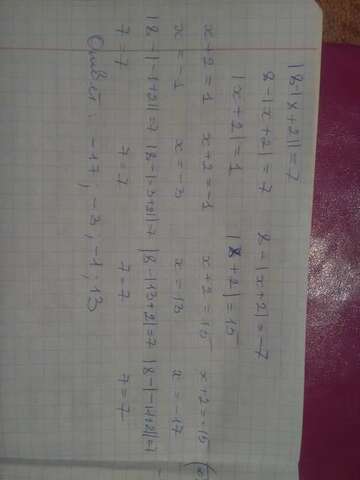 |8-|x+2||=7
8-|x+2|=7 8-|x+2|=-7
|x+2|=1 |x+2|=15
x+2=1 x+2=-1 x+2=15 x+2=-15
x=-1 x=-3 x=13 x=-17
|8-|-1+2||=7 |8-|-3+2||=7 |8-|13+2||=7 |8-|-17+2||=7
7=7 7=7 7=7 7=7
Ответ: -17; -3; -1; 13